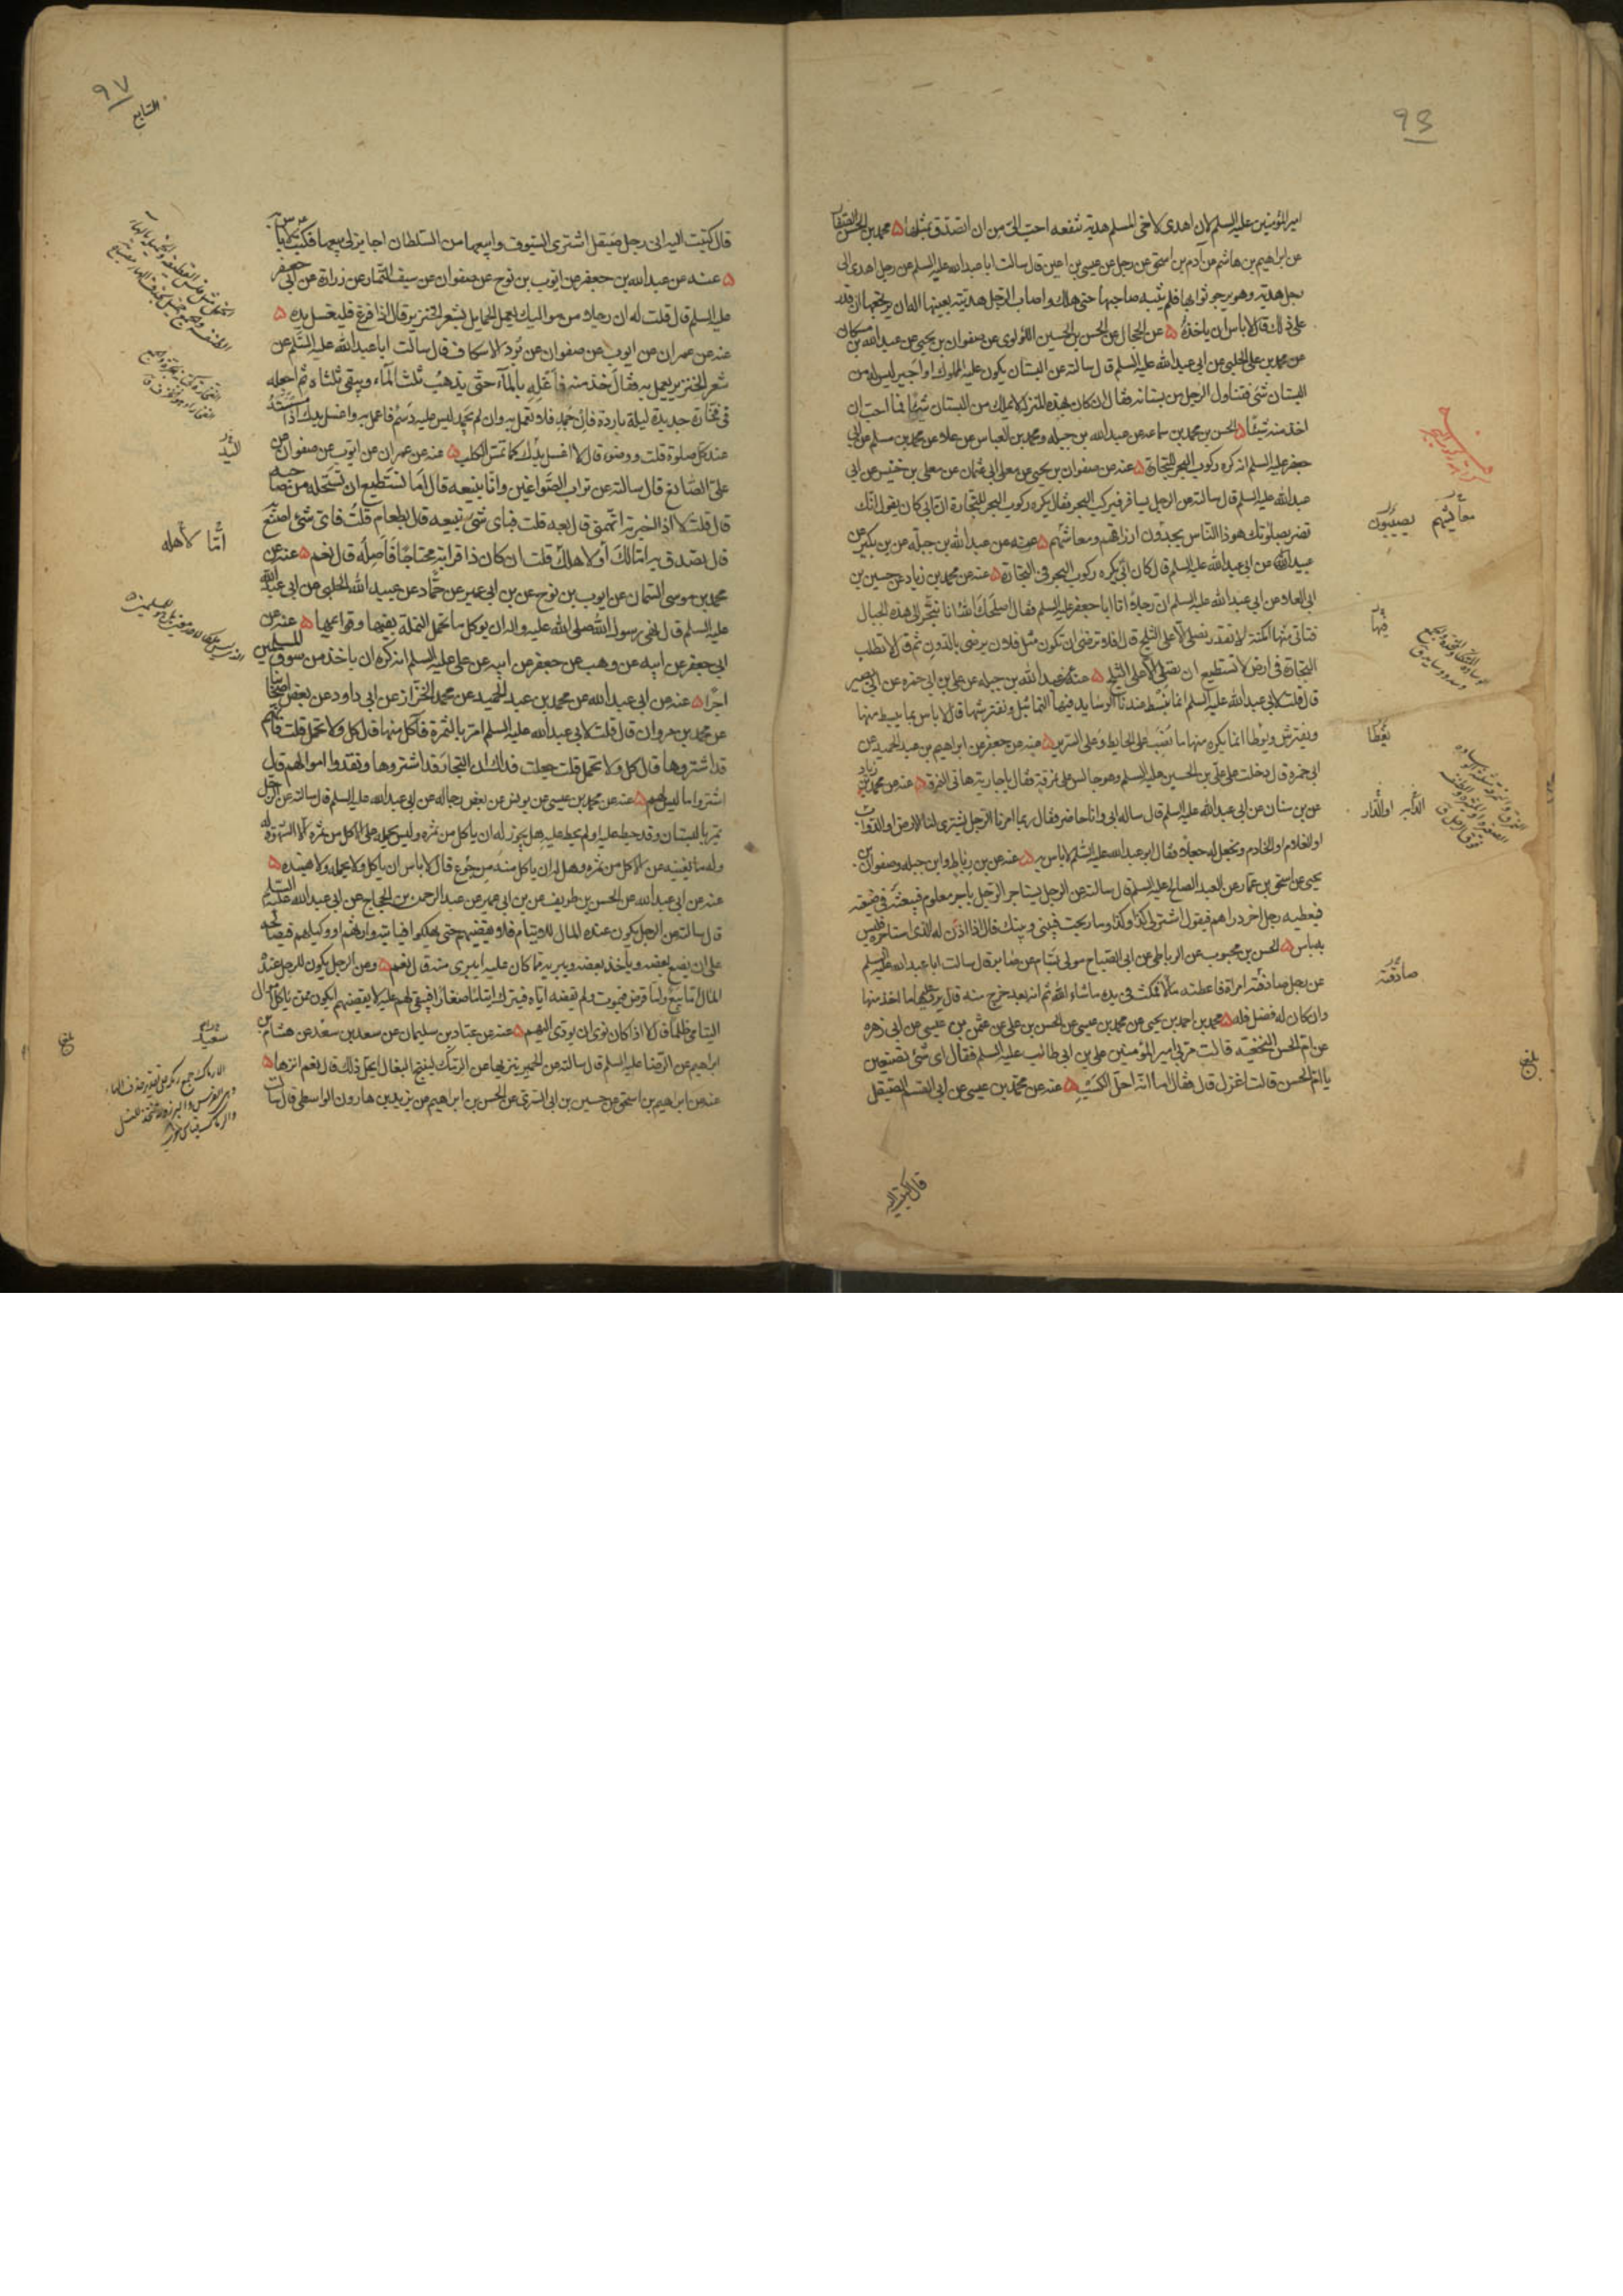 امير المؤمنين عليه السلم لان اهدى لاخى المسلم هدية تنفعه احب الى من ان اتصدق بمثلها محمد بن الحسن الصفار
عن ابراهيم بن هاشم عن آدم بن اسحق عن رجل عن عيسى بن اعين قال سالت ابا عبدالله عليه السلم عن رجل اهدى الى
رجل هدية وهو يرجو ثوابها فلم يثبه صاحبها حتى هلك واصاب الرجل هديته بعينها اله ان يرتجعها ان قدر
على ذلك قال لا باس ان ياخذه عن الحجال عن الحسن بن الحسين اللؤلوى عن صفوان بن يحيى عن عبد الله بن مسكان
عن محمد بن على الحلبى عن ابى عبد الله عليه السلم قال سالته عن البستان يكون عليه المملوك او اجير ليس له من
البستان شئ فتناول الرجل من بستانه فقال ان كان بهذه المنزلة لا يملك من البستان شيئا فما احب ان
اخذ منه شيئا الحسن بن محمد بن سماعه عن عبد الله بن جبله ومحمد بن العباس عن علاء عن محمد بن مسلم عن ابى
جعفر عليه السلم انه كره ركوب البحر للتجارة عنه عن صفوان بن يحيى عن معلى ابى عثمان عن معلى بن خنيس عن ابى
عبد الله عليه السلم قال سالته عن الرجل يسافر فيركب البحر فقال يكره ركوب البحر للتجارة ان ابى كان يقول انك
تضر بصلوتك هوذا الناس يجدون ارزاقهم ومعاشهم عنه عن عبد الله بن جبله عن بن بكير عن
عبيد الله عن ابى عبد الله عليه السلم قال كان ابى يكره ركوب البحر فى التجارة عنه عن محمد بن زياد عن حسين بن
ابى العلاء عن ابى عبد الله عليه السلم ان رجلا اتى ابا جعفر عليه السلم فقال اصلحك الله انا نتجر الى هذه الجبال
فناتى منها امكنة لا نقدر نصلى الا على الثلج قال افلا ترضى ان تكون مثل فلان يرضى بالدون ثم قال لا تطلب
التجارة فى ارض لا تستطيع ان تصلى الا على الثلج عنه عن عبد الله بن جبله عن على بن ابى حمزه عن ابى بصير
قال قلت لابى عبد الله عليه السلم انما نبسط عندنا الوسايد فيها التماثيل ونفترشها قال لا باس بما يبسط منها
ويفترش ويوطا انما يكره منها ما نصب على الحايط وعلى السرير عنه عن جعفر عن ابراهيم بن عبد الحميد عن
ابى حمزه قال دخلت على على بن الحسين عليه السلم وهو جالس على نمرقة فقال يا جارية هاتى النمرقة عنه عن محمد بن زياد
عن بن سنان عن ابى عبد الله عليه السلم قال ساله ابى وانا حاضر فقال ربما امرنا الرجل يشترى لنا الارض او الدواب
او الغلام او الخادم ونجعل له جعلا فقال ابو عبد الله عليه السلم لا باس به عنه عن بن رباط وابن جبله وصفوان بن
يحيى عن اسحق بن عمار عن العبد الصالح عليه السلم قال سالته عن الرجل يستاجر الرجل باجر معلوم فيبعثه فى ضيعته
فيعطيه رجل اخر دراهم فيقول اشتر لى كذا وكذا وما ربحت فبينى وبينك قال اذا اذن له الذى استاجره فليس
به باس الحسن بن محبوب عن الرباطى عن ابى الصباح مولى بسام عن صابر قال سالت ابا عبد الله عليه السلم
عن رجل صادقته امراة فاعطته مالا فمكث فى يده ما شاء الله ثم انه بعد خرج منه قال يرد عليها ما اخذ منها
وان كان له فضل فله محمد بن احمد بن يحيى عن محمد بن عيسى عن الحسن بن على عن عثمن بن عيسى عن ابى زهره
عن ام الحسن النخعية قالت مر بى امير المؤمنين على بن ابى طالب عليه السلم فقال اى شئ تصنعين
يا ام الحسن قالت اغزل قال فقال اما انه احل الكسب عنه عن محمد بن عيسى عن ابى القسم الصيقل
معايشهم يصيبون
فيها
يغطا
صادقته
بلغ
قال كتبت اليه
٩٧
السابع
قال كتبت اليه انى رجل صيقل اشترى السيوف وابيعها من السلطان اجايز لى بيعها فكتب
عنه عن عبد الله بن جعفر عن ايوب بن نوح عن صفوان عن سيف التمار عن زرارة عن ابى جعفر
عليه السلم قال قلت له ان رجلا من مواليك يعمل الحمايل بشعر الخنزير قال اذا فرغ فليغسل يده
عنه عن عمران عن ايوب عن صفوان عن برد الاسكاف قال سالت ابا عبد الله عليه السلم عن
شعر الخنزير يعمل به فقال خذ منه فاغله بالماء حتى يذهب ثلث الماء ويبقى ثلثاه ثم اجعله
فى فخارة جديدة ليلة باردة فان جمد فلا تعمل به وان لم يجمد ليس عليه دسم فاعمل به واغسل يدك اذا مسسته
عند كل صلوة قلت ووضوء قال لا اغسل يدك كما تمس الكلب عنه عن عمران عن ايوب عن صفوان عن
على الصائغ قال سالته عن تراب الصواغين وانا نبيعه قال اما تستطيع ان تستحله من صاحبه
قال قلت لا اذا اخبرته اتهمنى قال بعه قلت فباى شئ نبيعه قال بطعام قلت فاى شئ اصنع
قال تصدق به اما لك او لاهلك قلت ان كان ذا قرابة محتاجا فاصله قال نعم عنه عن
محمد بن موسى السمان عن ايوب بن نوح عن بن ابى عمير عن حماد عن عبيد الله الحلبى عن ابى عبد الله
عليه السلم قال نهى رسول الله صلى الله عليه واله ان يوكل ما تحمل النملة بفيها وقوائمها عنه عن
ابى جعفر عن ابيه عن وهب عن جعفر عن ابيه عن على عليه السلم انه كره ان ياخذ من سوق المسلمين
اجرا عنه عن ابى عبد الله عن محمد بن عبد الحميد عن محمد الخزاز عن ابى داود عن بعض اصحابنا
عن محمد بن مروان قال قلت لابى عبد الله عليه السلم امر بالثمرة فآكل منها قال كل ولا تحمل قلت فانهم
قد اشتروها قال كل ولا تحمل قلت جعلت فداك ان التجار قد اشتروها ونقدوا اموالهم قال
اشتروا ما ليس لهم عنه عن محمد بن عيسى عن يونس عن بعض رجاله عن ابى عبد الله عليه السلم قال سالته عن الرجل
يمر بالبستان وقد حيط عليه او لم يحط عليه هل يجوز له ان ياكل من ثمره وليس يحمله على الاكل من ثمره الا الشهوة
وله ما يغنيه عن الاكل من ثمره وهل له ان ياكل منه من جوع قال لا باس ان ياكل ولا يحمله ولا يفسده
عنه عن ابى عبد الله عن الحسن بن ظريف عن بن ابى عمير عن عبد الرحمن بن الحجاج عن ابى عبد الله عليه السلم
قال سالته عن الرجل يكون عنده المال للايتام فلا يقضيهم حتى يهلكوا فياتيه وارثهم او وكيلهم فيصالحه
على ان يضع بعضه وياخذ بعضه ويبريه مما كان عليه ايبرى منه قال نعم وعن الرجل يكون للرجل عنده
اليتامى ظلما قال لا اذا كان نوى ان يودى اليهم عنه عن عباد بن سليمان عن سعد بن سعد عن هشام بن
ابراهيم عن الرضا عليه السلم قال سالته عن الحمير ننزيها عن الرمك لينتج البغال ايحل ذلك قال نعم انزها
عنه عن ابراهيم بن اسحق عن حسين بن ابى السرى عن الحسن بن ابراهيم عن يزيد بن هارون الواسطى قال سالت
اما لاهله
سعيد
بلغ